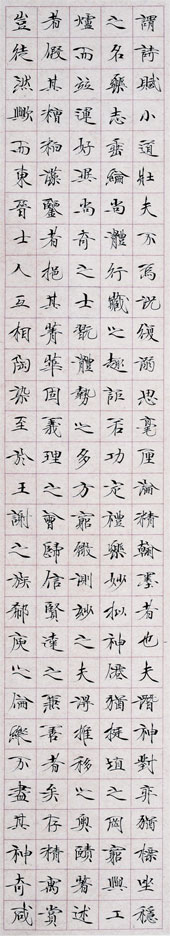 謂詩賦小道壯夫不為況復溺思毫厘淪精翰墨者也夫潛神對弈猶標坐隱
之名樂志垂綸尚體行藏之趣詎若功定禮樂妙擬神僊猶埏埴之罔窮與工
爐而竝運好異尚奇之士翫體勢之多方窮微測妙之夫得推移之奧賾著述
者假其糟粕藻鑒者挹其菁華固義理之會歸信賢達之兼善者矣存精寓賞
豈徒然歟而東晉士人互相陶染至於王謝之族郗庾之倫縱不盡其神奇咸